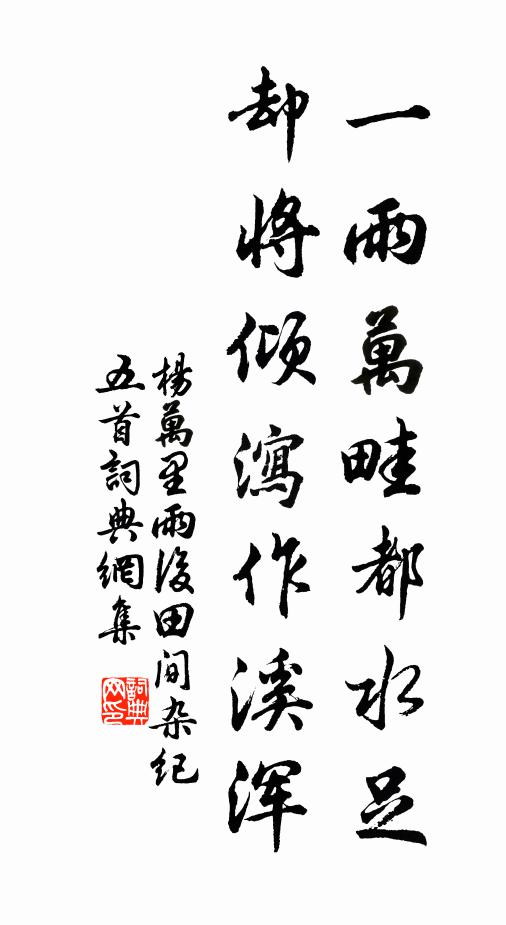 一雨萬畦都水足
却將傾瀉作溪浑
楊萬里雨後田间杂紀
五首詞典網集
詞典
网印